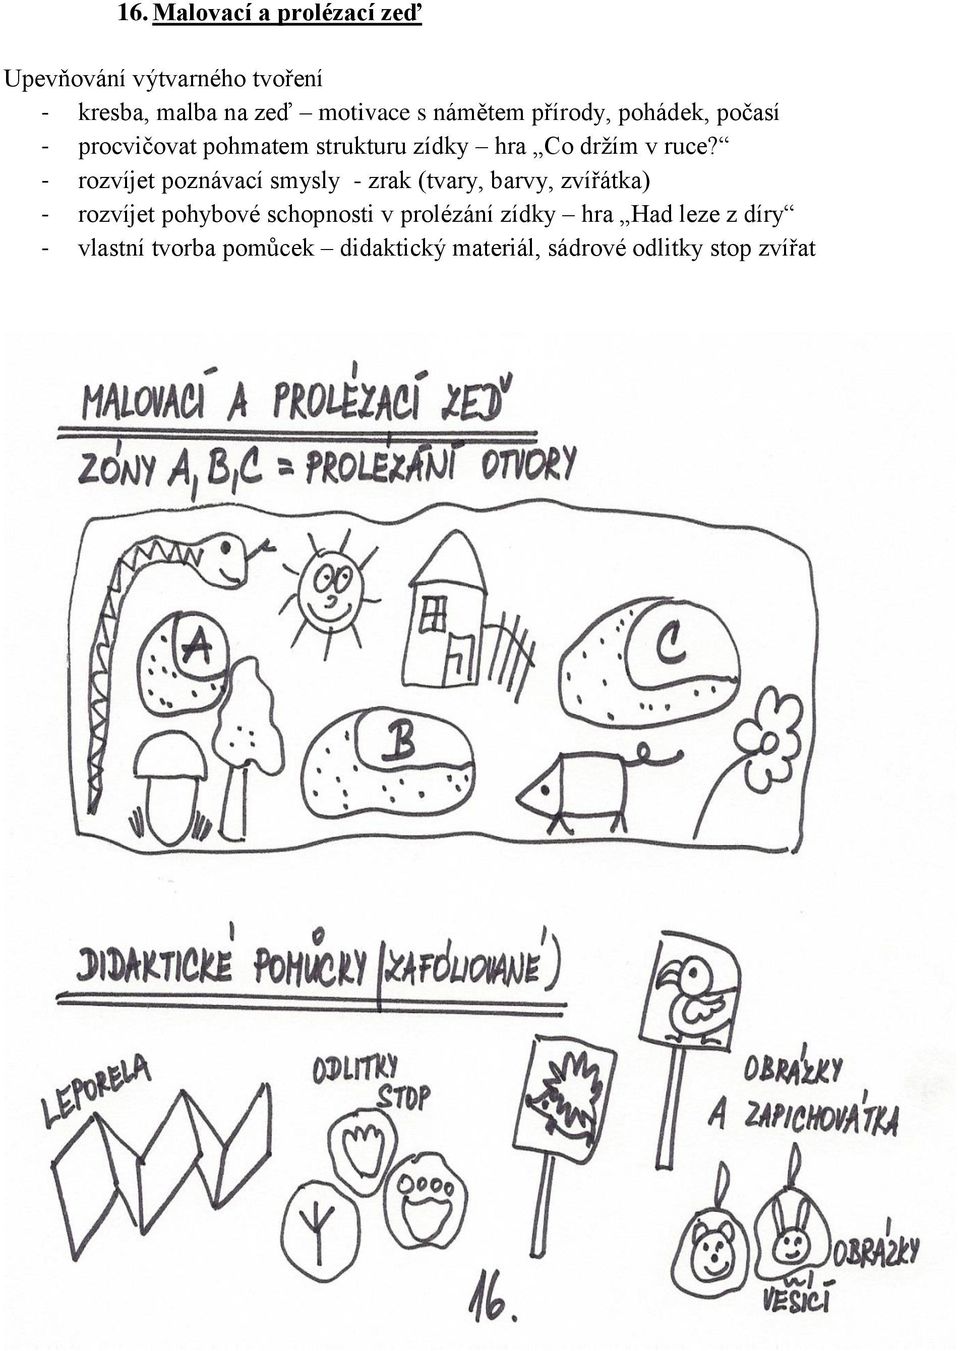 16. Malovací a prolézací zeď
Upevňování výtvarného tvoření
- kresba, malba na zeď – motivace s námětem přírody, pohádek, počasí
- procvičovat pohmatem strukturu zídky – hra „Co držím v ruce?“
- rozvíjet poznávací smysly - zrak (tvary, barvy, zvířátka)
- rozvíjet pohybové schopnosti v prolézání zídky – hra „Had leze z díry“
- vlastní tvorba pomůcek – didaktický materiál, sádrové odlitky stop zvířat
MALOVACÍ A PROLÉZACÍ ZEĎ
ZÓNY A, B, C = PROLÉZÁNÍ OTVORY
A
B
C
DIDAKTICKÉ POMŮCKY (ZAFÓLIOVANÉ)
LEPORELA
ODLITKY
STOP
OBRÁZKY
A ZAPICHOVÁTKA
OBRÁZKY
VĚSÍCÍ
16.